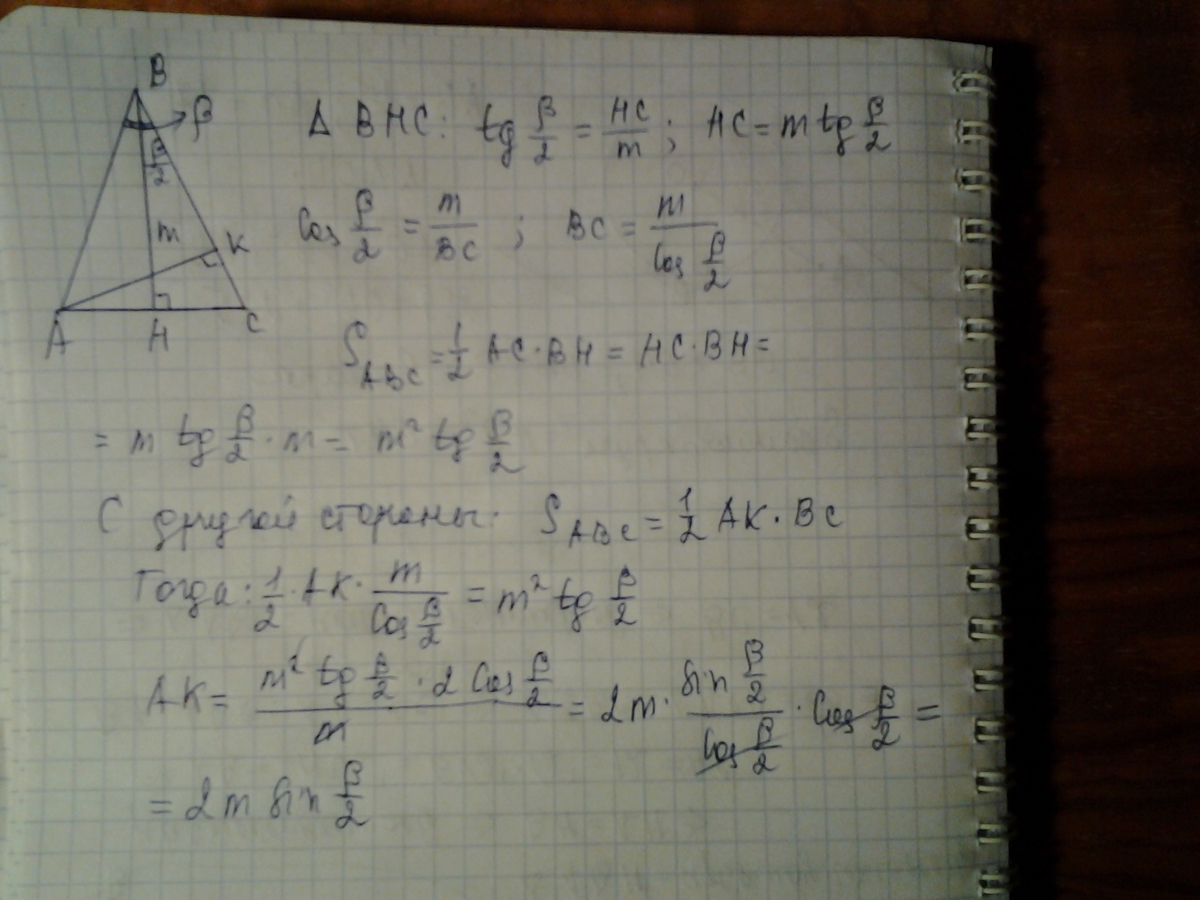 B
β
β/2
m
K
A H C
Δ BHC: tg β/2 = HC/m ; HC = m tg β/2
Cos β/2 = m/BC ; BC = m/Cos β/2
S_ABC = 1/2 AC · BH = HC · BH =
= m tg β/2 · m = m² tg β/2
С другой стороны: S_ABC = 1/2 AK · BC
Тогда: 1/2 · AK · m/Cos β/2 = m² tg β/2
AK = m² tg β/2 · 2 Cos β/2 / m = 2m · sin β/2 / Cos β/2 · Cos β/2 =
= 2 m sin β/2